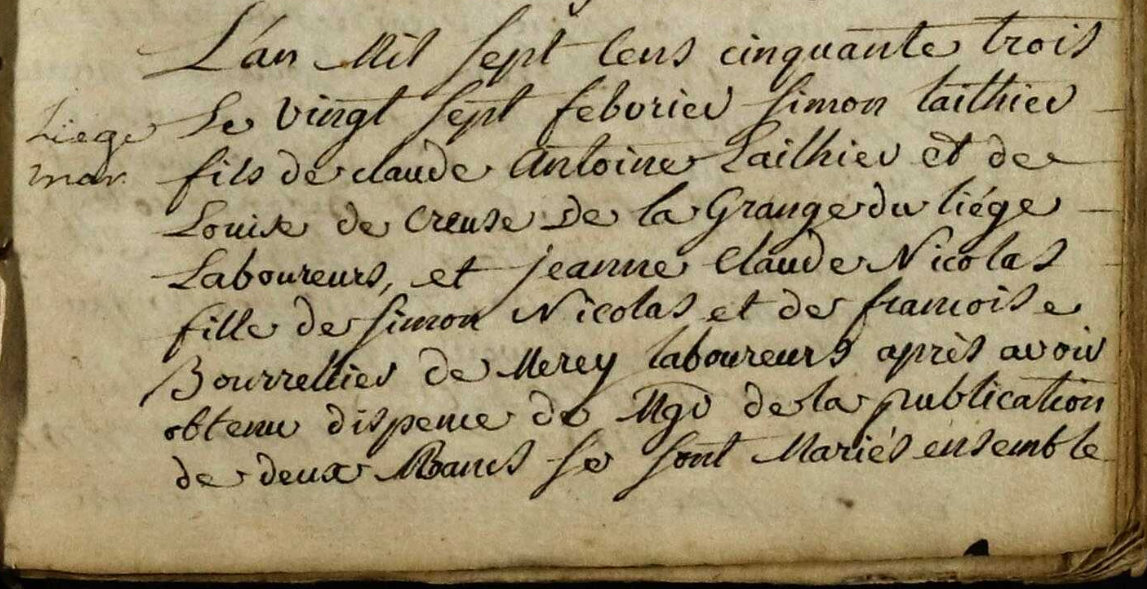 L'an Mil sept Cens cinquante trois
Liege
mar.
Le vingt sept febvrier simon Lailhier
fils de claude Antoine Lailhier et de
Louise de Creuse De la Grange du liége
Laboureurs, et jeanne Claude Nicolas
fille de simon Nicolas et de francoise
Bourrelier de Merey laboureurs après avoir
obtenu dispence de Mgr de la publication
de deux Bancs se sont Mariés ensemble